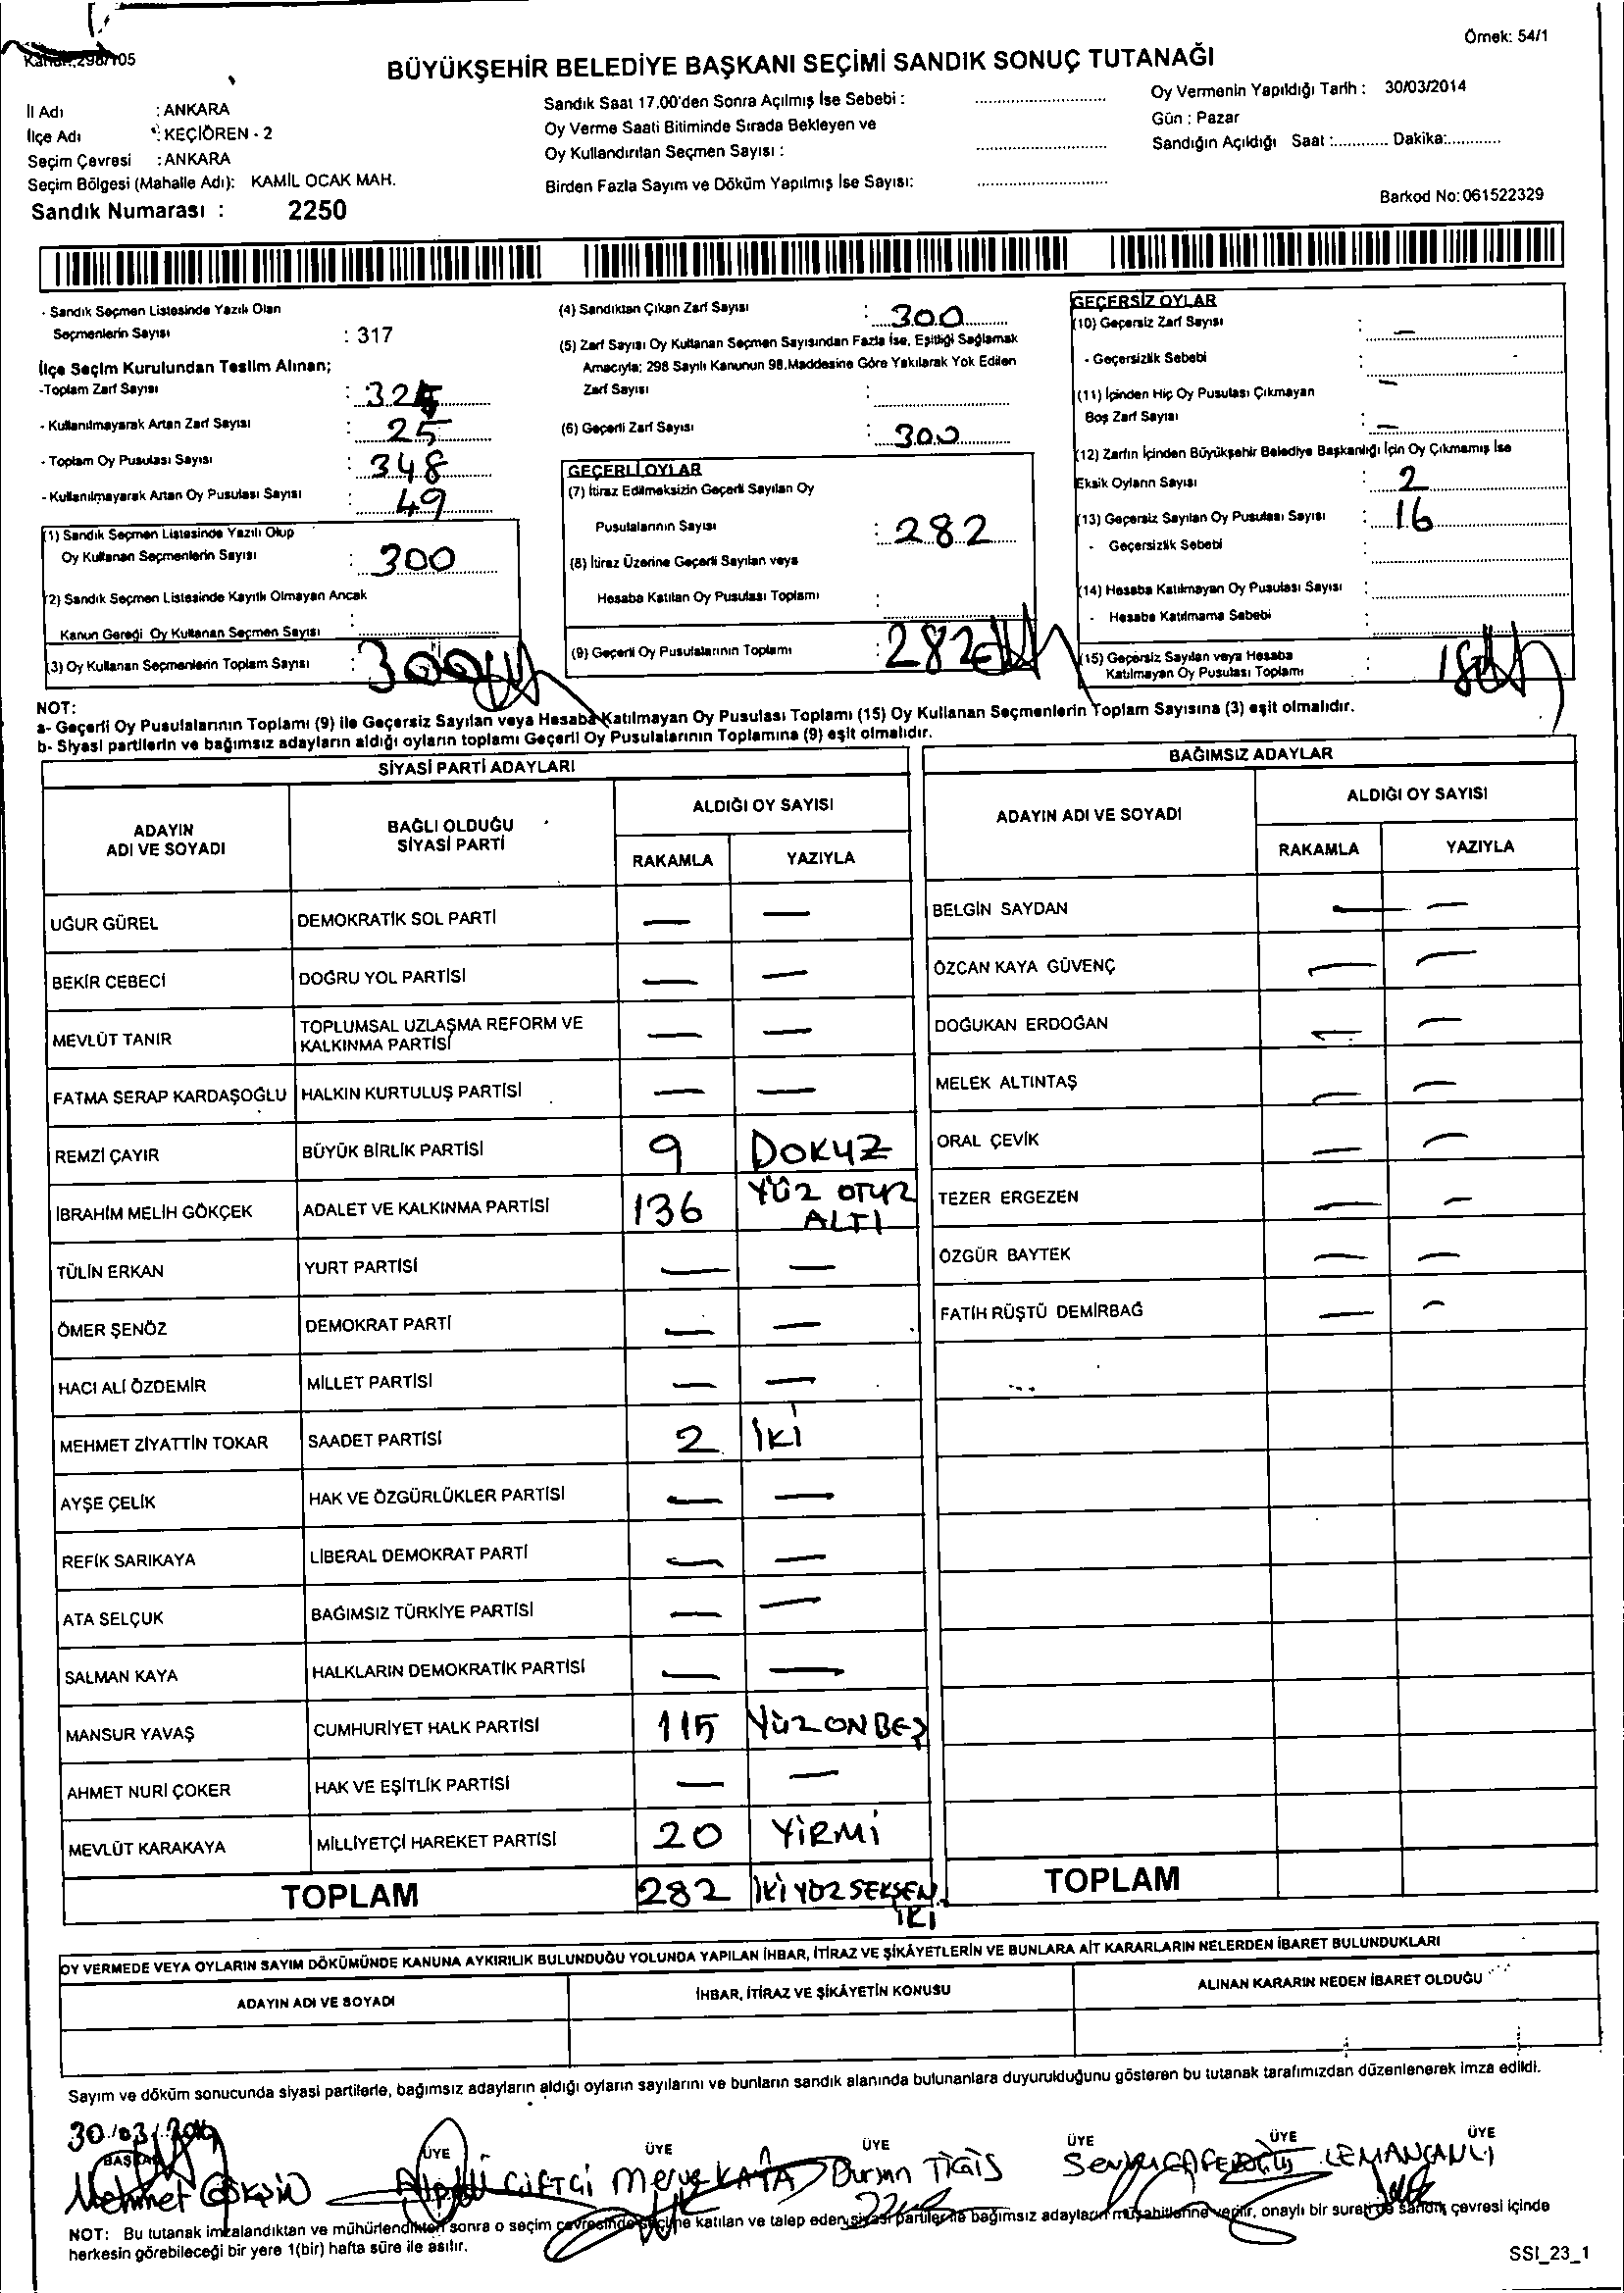 Örnek: 54/1
BÜYÜKŞEHİR BELEDİYE BAŞKANI SEÇİMİ SANDIK SONUÇ TUTANAĞI
İl Adı : ANKARA
İlçe Adı : KEÇİÖREN - 2
Seçim Çevresi : ANKARA
Seçim Bölgesi (Mahalle Adı): KAMİL OCAK MAH.
Sandık Numarası : 2250
Sandık Saat 17.00'den Sonra Açılmış İse Sebebi :
Oy Verme Saati Bitiminde Sırada Bekleyen ve
Oy Kullandırılan Seçmen Sayısı :
Birden Fazla Sayım ve Döküm Yapılmış İse Sayısı:
Oy Vermenin Yapıldığı Tarih : 30/03/2014
Gün : Pazar
Sandığın Açıldığı Saat :............ Dakika:............
Barkod No: 061522329
- Sandık Seçmen Listesinde Yazılı Olan
Seçmenlerin Sayısı : 317
İlçe Seçim Kurulundan Teslim Alınan;
-Toplam Zarf Sayısı : 325
- Kullanılmayarak Artan Zarf Sayısı : 25
- Toplam Oy Pusulası Sayısı : 348
- Kullanılmayarak Artan Oy Pusulası Sayısı : 49
(1) Sandık Seçmen Listesinde Yazılı Olup
Oy Kullanan Seçmenlerin Sayısı : 300
(2) Sandık Seçmen Listesinde Kayıtlı Olmayan Ancak
Kanun Gereği Oy Kullanan Seçmen Sayısı :
(3) Oy Kullanan Seçmenlerin Toplam Sayısı : 300
(4) Sandıktan Çıkan Zarf Sayısı : 300
(5) Zarf Sayısı Oy Kullanan Seçmen Sayısından Fazla İse, Eşitliği Sağlamak
Amacıyla; 298 Sayılı Kanunun 98.Maddesine Göre Yakılarak Yok Edilen
Zarf Sayısı :
(6) Geçerli Zarf Sayısı : 300
GEÇERLİ OYLAR
(7) İtiraz Edilmeksizin Geçerli Sayılan Oy
Pusulalarının Sayısı : 282
(8) İtiraz Üzerine Geçerli Sayılan veya
Hesaba Katılan Oy Pusulası Toplamı :
(9) Geçerli Oy Pusulalarının Toplamı : 282
GEÇERSİZ OYLAR
(10) Geçersiz Zarf Sayısı : —
- Geçersizlik Sebebi :
(11) İçinden Hiç Oy Pusulası Çıkmayan —
Boş Zarf Sayısı : —
(12) Zarfın İçinden Büyükşehir Belediye Başkanlığı İçin Oy Çıkmamış İse
Eksik Oyların Sayısı : 2
(13) Geçersiz Sayılan Oy Pusulası Sayısı : 16
- Geçersizlik Sebebi
(14) Hesaba Katılmayan Oy Pusulası Sayısı :
- Hesaba Katılmama Sebebi
(15) Geçersiz Sayılan veya Hesaba
Katılmayan Oy Pusulası Toplamı : 18
NOT:
a- Geçerli Oy Pusulalarının Toplamı (9) ile Geçersiz Sayılan veya Hesaba Katılmayan Oy Pusulası Toplamı (15) Oy Kullanan Seçmenlerin Toplam Sayısına (3) eşit olmalıdır.
b- Siyasi partilerin ve bağımsız adayların aldığı oyların toplamı Geçerli Oy Pusulalarının Toplamına (9) eşit olmalıdır.
SİYASİ PARTİ ADAYLARI
ADAYIN ADI VE SOYADI
BAĞLI OLDUĞU SİYASİ PARTİ
ALDIĞI OY SAYISI
RAKAMLA YAZIYLA
UĞUR GÜREL DEMOKRATİK SOL PARTİ — —
BEKİR CEBECİ DOĞRU YOL PARTİSİ — —
MEVLÜT TANIR TOPLUMSAL UZLAŞMA REFORM VE KALKINMA PARTİSİ — —
FATMA SERAP KARDAŞOĞLU HALKIN KURTULUŞ PARTİSİ — —
REMZİ ÇAYIR BÜYÜK BİRLİK PARTİSİ 9 DOKUZ
İBRAHİM MELİH GÖKÇEK ADALET VE KALKINMA PARTİSİ 136 YÜZ OTUZ ALTI
TÜLİN ERKAN YURT PARTİSİ — —
ÖMER ŞENÖZ DEMOKRAT PARTİ — —
HACI ALİ ÖZDEMİR MİLLET PARTİSİ — —
MEHMET ZİYATTİN TOKAR SAADET PARTİSİ 2 İKİ
AYŞE ÇELİK HAK VE ÖZGÜRLÜKLER PARTİSİ — —
REFİK SARIKAYA LİBERAL DEMOKRAT PARTİ — —
ATA SELÇUK BAĞIMSIZ TÜRKİYE PARTİSİ — —
SALMAN KAYA HALKLARIN DEMOKRATİK PARTİSİ — —
MANSUR YAVAŞ CUMHURİYET HALK PARTİSİ 115 YÜZ ON BEŞ
AHMET NURİ ÇOKER HAK VE EŞİTLİK PARTİSİ — —
MEVLÜT KARAKAYA MİLLİYETÇİ HAREKET PARTİSİ 20 YİRMİ
TOPLAM 282 İKİ YÜZ SEKSEN İKİ
BAĞIMSIZ ADAYLAR
ADAYIN ADI VE SOYADI
ALDIĞI OY SAYISI
RAKAMLA YAZIYLA
BELGİN SAYDAN — —
ÖZCAN KAYA GÜVENÇ — —
DOĞUKAN ERDOĞAN — —
MELEK ALTINTAŞ — —
ORAL ÇEVİK — —
TEZER ERGEZEN — —
ÖZGÜR BAYTEK — —
FATİH RÜŞTÜ DEMİRBAĞ — —
TOPLAM
OY VERMEDE VEYA OYLARIN SAYIM DÖKÜMÜNDE KANUNA AYKIRILIK BULUNDUĞU YOLUNDA YAPILAN İHBAR, İTİRAZ VE ŞİKÂYETLERİN VE BUNLARA AİT KARARLARIN NELERDEN İBARET BULUNDUKLARI
ADAYIN ADI VE SOYADI
İHBAR, İTİRAZ VE ŞİKÂYETİN KONUSU
ALINAN KARARIN NEDEN İBARET OLDUĞU
Sayım ve döküm sonucunda siyasi partilerle, bağımsız adayların aldığı oyların sayılarını ve bunların sandık alanında bulunanlara duyurulduğunu gösteren bu tutanak tarafımızdan düzenlenerek imza edildi.
30/03/2014
BAŞKAN ÜYE ÜYE ÜYE ÜYE ÜYE ÜYE
Mehmet ÇİFTÇİ Merve KAYA Dursun
NOT: Bu tutanak imzalandıktan ve mühürlendikten sonra o seçim çevresinde seçime katılan ve talep eden siyasi partiler ile bağımsız adayların müşahitlerine verilir, onaylı bir sureti de sandık çevresi içinde
herkesin görebileceği bir yere 1(bir) hafta süre ile asılır.
SSI_23_1